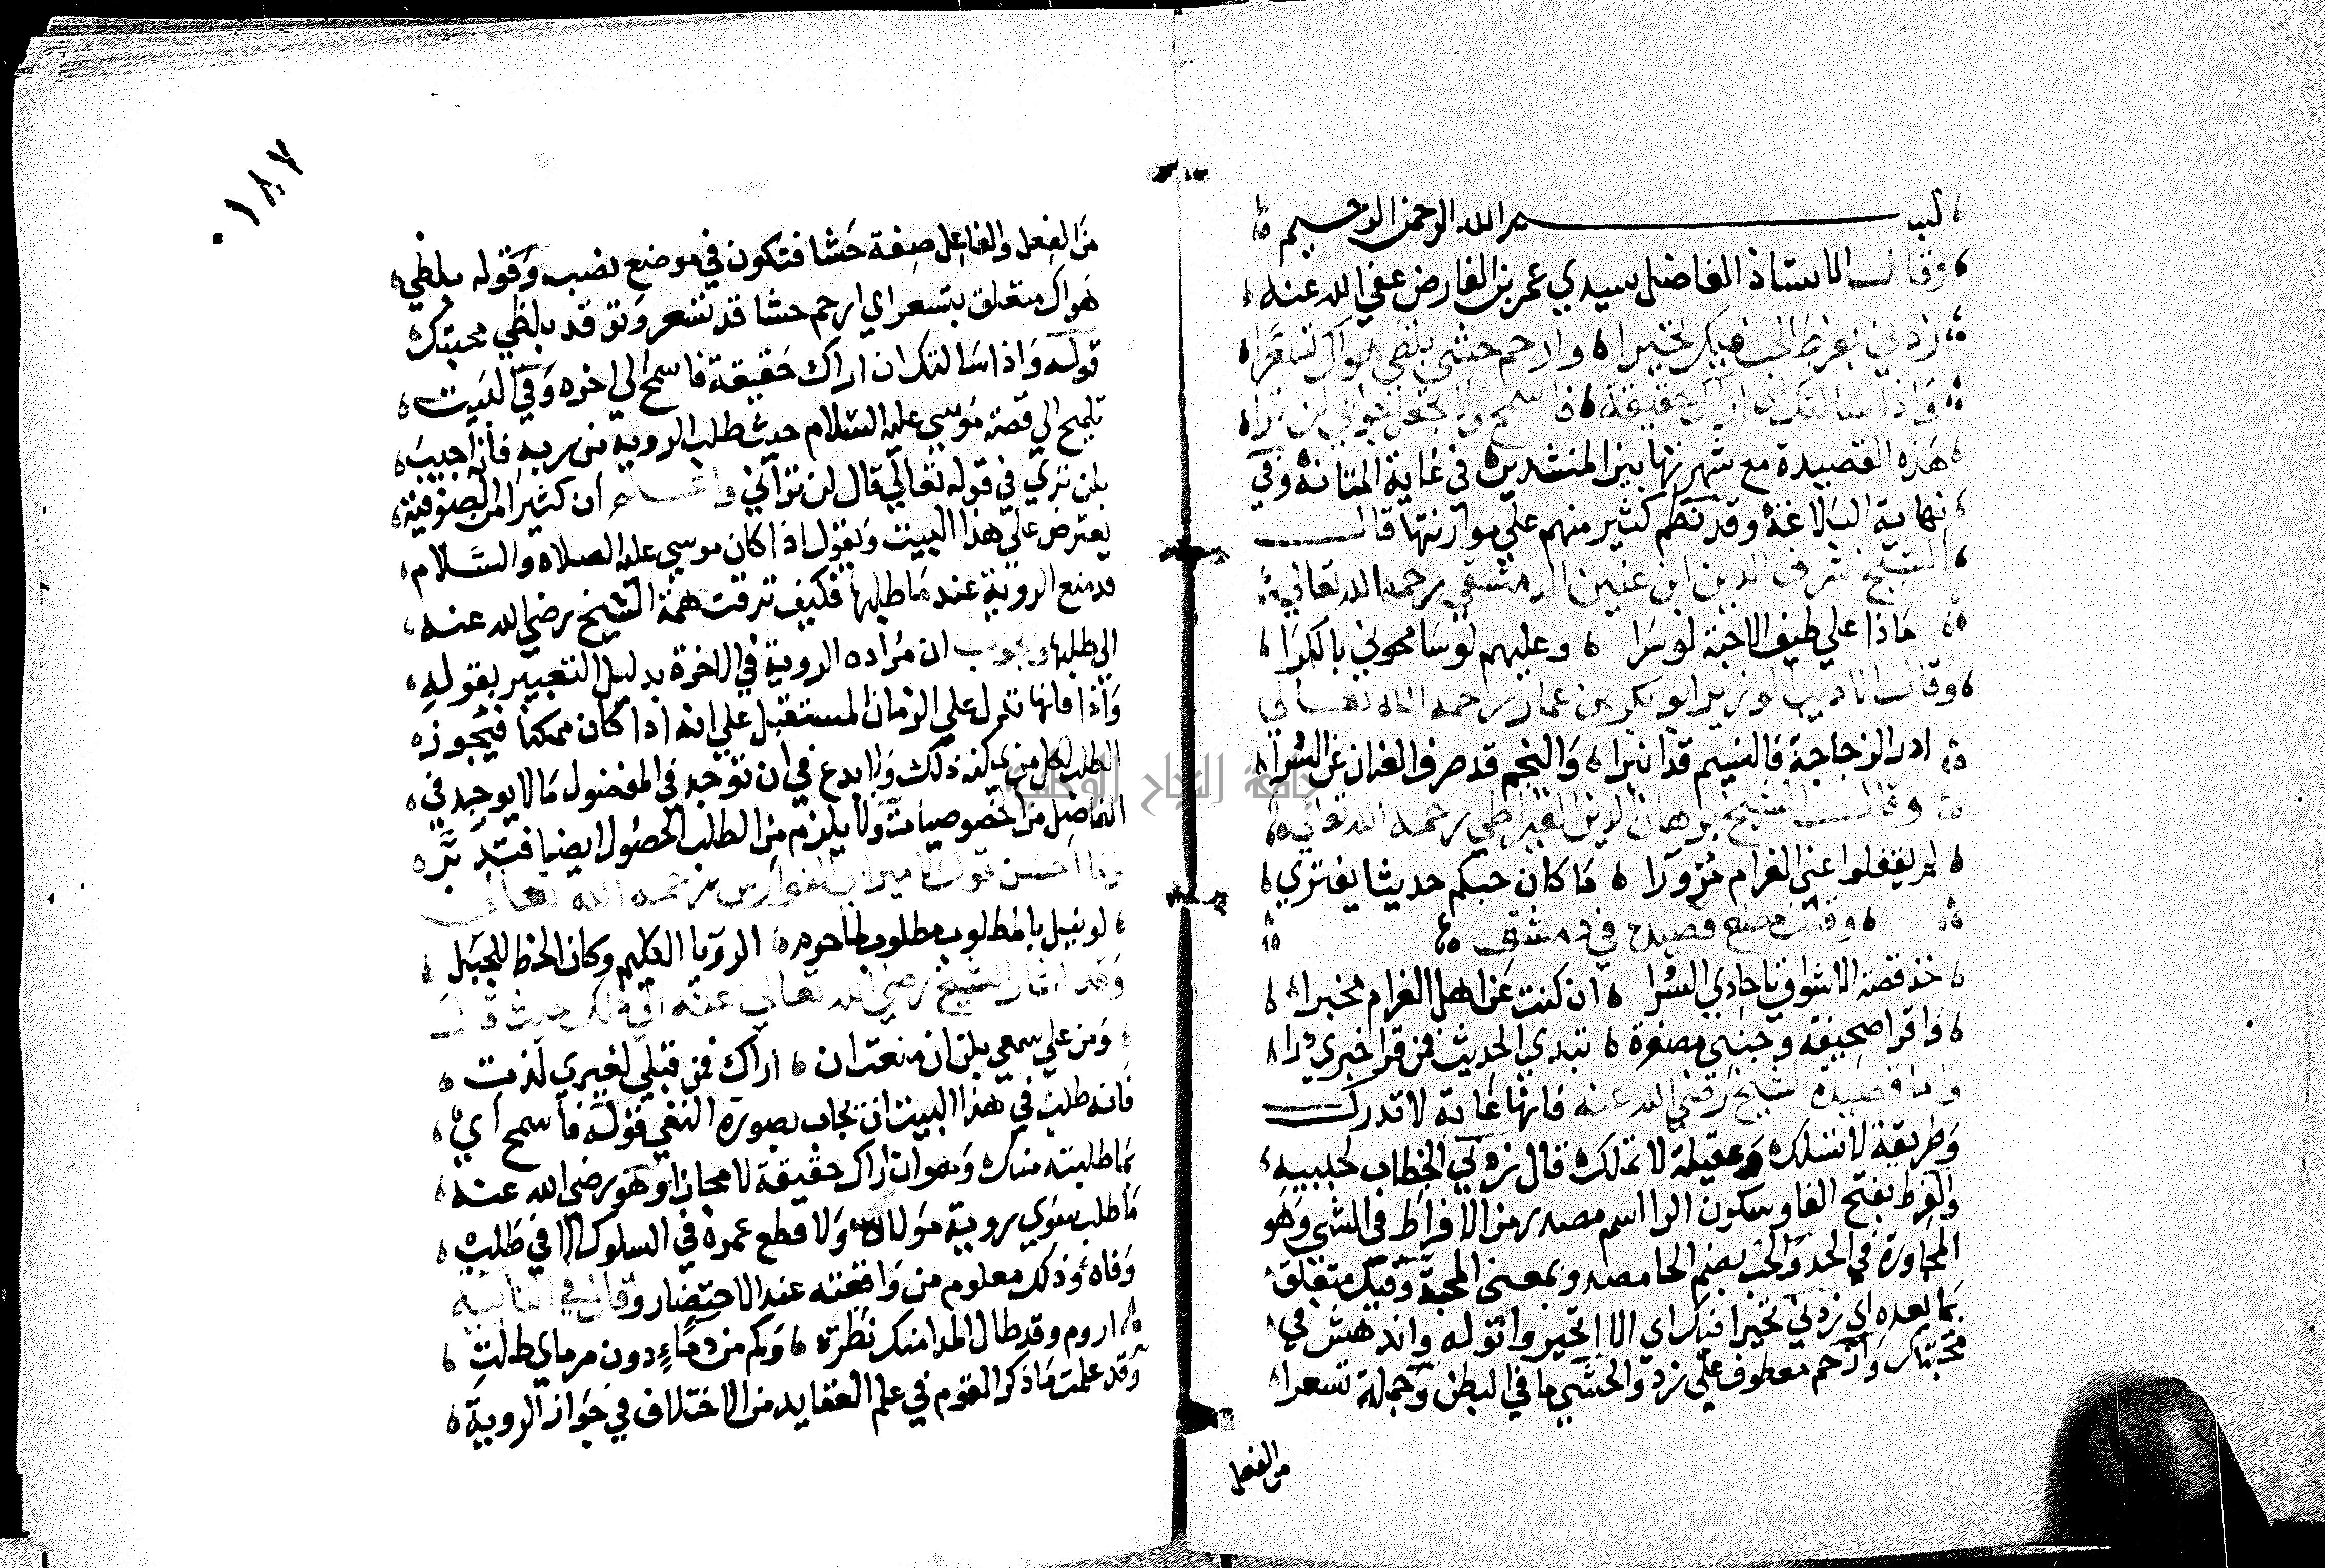 بسم الله الرحمن الرحيم
وقال الاستاذ الفاضل سيدي عمر بن الفارض عفي الله عنه
زدني بفرط الحب فيك تحيرا وارحم حشي بلظي هواك تسعرا
واذا سالتك ان اراك حقيقة فاسمح ولا تجعل جوابي لن ترا
هذه القصيدة مع شهرتها بين المنشدين في غاية المتانة وفي
نهاية البلاغة وقد نظم كثير منهم علي موازنتها قال
الشيخ شرف الدين ابن عنين الدمشقي رحمه الله تعالي
ماذا علي طيف الاحبة لو سرا وعليهم لو سامحوني بالكرا
وقال الاديب الوزير ابو بكر بن عمار رحمه الله تعالي
ادر الزجاجة فالنسيم قد انبرا والنجم قد صرف العنان عن السرا
وقال الشيخ برهان الدين القيراطي رحمه الله تعالي
لم ينقلوا عني الغرام مزورا ما كان حبكم حديثا يفتري
وقلت مطلع قصيدة في دمشق
خذ قصة الاشواق يا حادي السرا ان كنت عن اهل الغرام مخبرا
واقرا صحيفة وجنتي مصفرة تبدي الحديث فمن قرا خبري درا
واما قصيدة الشيخ رضي الله عنه فانها غاية لا تدرك
وطريقة لا تسلك وعقيلة لا تملك قال زدني الخطاب لحبيبه
والفرط بفتح الفا وسكون الرا اسم مصدر من الافراط في الشي وهو
المجاورة في الحد والحب بضم الحا مصدر بمعني المحبة وفيك متعلق
بما بعده اي زدني تحيرا فيك اي الا اتحير واتوله واندهش في
محبتك وارحم معطوف علي زد والحشي ما في البطن وجملة تسعرا
من الفعل
١٨٧
من الفعل والفاعل صفة حشا فتكون في موضع نصب وقوله بلظي
هواك متعلق بتسعر اي ارحم حشا قد تسعر وتوقد بلظي محبتك
قوله واذا سالتك ان اراك حقيقة فاسمح الي اخره وفي البيت
تلميح الي قصة موسي عليه السلام حيث طلب الروية من ربه فاجيب
بلن تري في قوله تعالي قال لن تراني واعلم ان كثيرا من الصوفية
يعترض علي هذا البيت ويقول اذا كان موسي عليه الصلاه والسلام
قد منع الروية عند ما طلبها فكيف ترقت همة الشيخ رضي الله عنه
الي طلبها والجواب ان مراده الروية في الاخرة بدليل التعبير بقوله
واذا فانها تدل علي الزمان المستقبل علي انه اذا كان ممكنا فيجوز
الطلب لكل من يمكنه ذلك ولا بدع في ان توجد في المفضول ما لا يوجد في
الفاضل من الخصوصيات ولا يلزم من الطلب الحصول ايضا فتدبره
وما احسن قول الامير ابي الفوارس رحمه الله تعالي
لو نيل بالمطلوب مطلوب لما حرم الرويا الكليم وكان الحظ للجبل
وقد اشار الشيخ رضي الله تعالي عنه الي ذلك حيث قال
ومن علي سمعي بلن ان منعت ان اراك فمن قبلي لغيري لذت
فانه طلب في هذا البيت ان يجاب بصورة النفي قوله فاسمح اي
بما طلبته منك وهو ان اراك حقيقة لا مجازا وهو رضي الله عنه
ما طلب سوي روية مولاه ولا قطع عمره في السلوك الا في طلب
وفاه وذلك معلوم من واقعته عند الاحتضار وقال في التائيه
اروم وقد طال المدا منك نظرة وكم من دماء دون مرماي طلت
وقد علمت ما ذكر القوم في علم العقايد من الاختلاف في جواز الروية
جامعة النجاح الوطنية